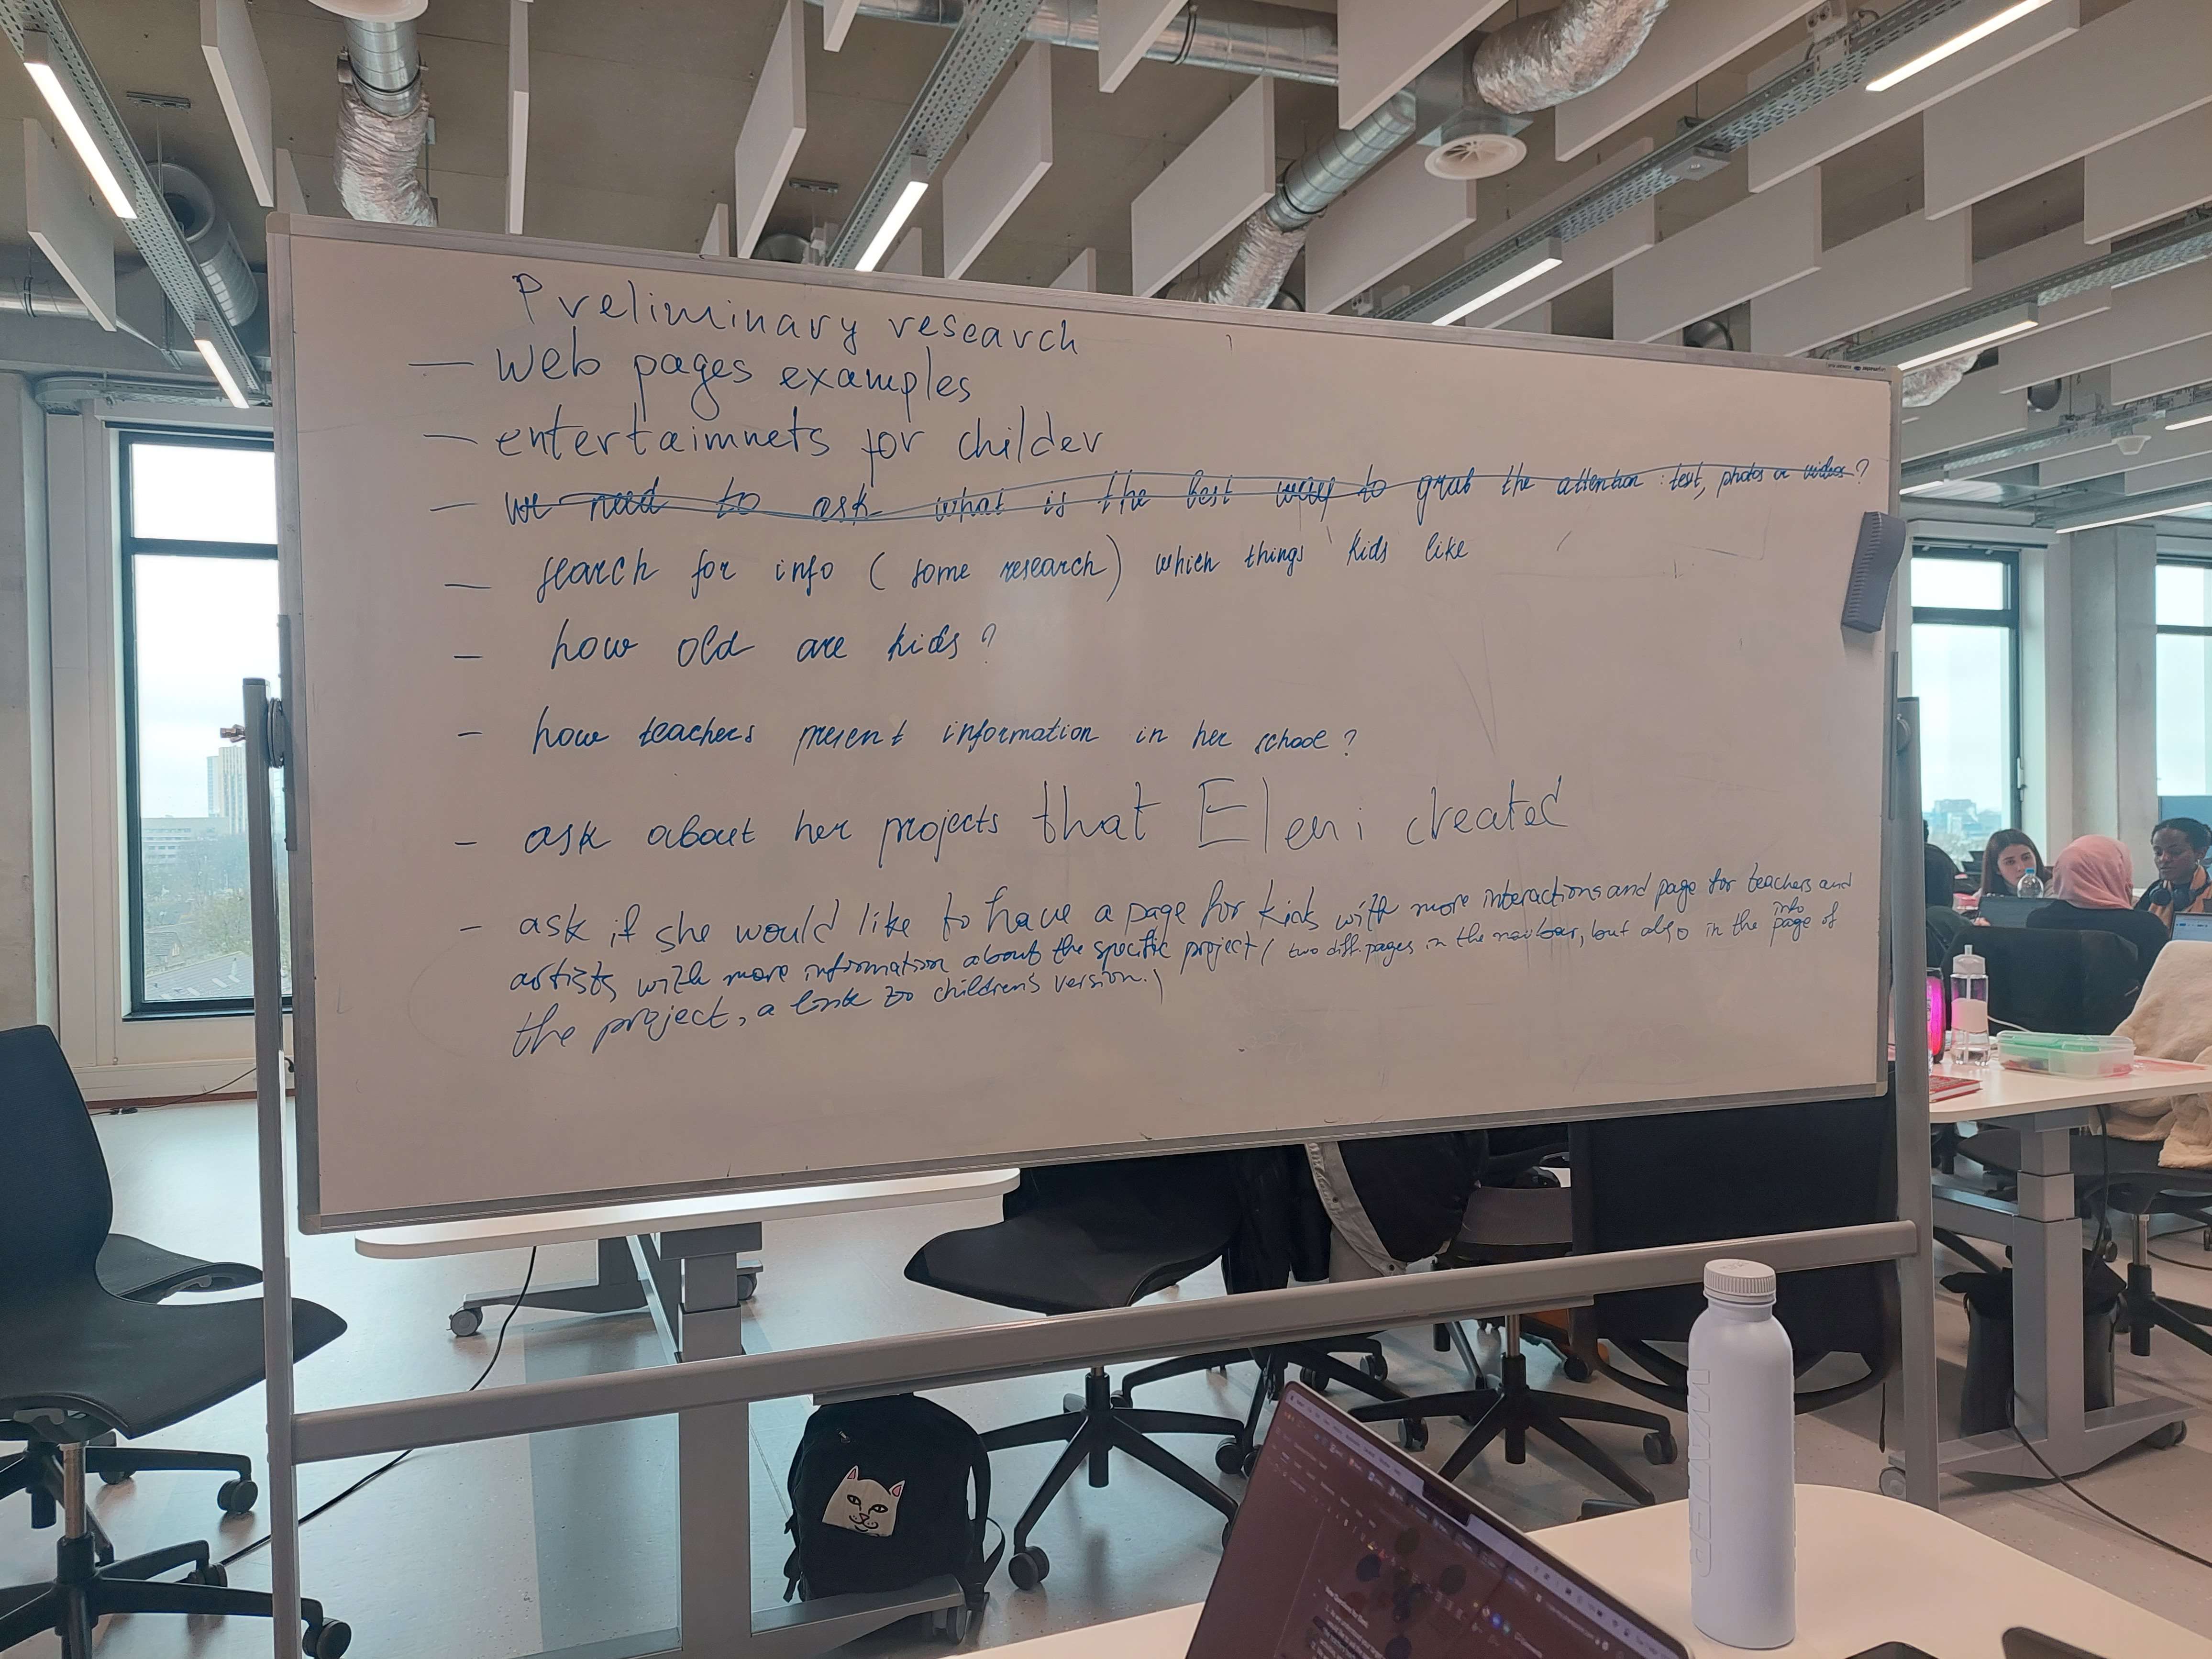 Preliminary research
— web pages examples
— entertaimnets for childer
— we need to ask what is the best way to grab the attention : text, photos or videos?
— search for info ( some research ) which things kids like
— how old are kids?
— how teachers present information in her school?
— ask about her projects that Eleni created
— ask if she would like to have a page for kids with more interactions and page for teachers and
artists with more information about the specific project ( two diff. pages in the navbar, but also in the info page of
the project, a link to children's version.)
WATER